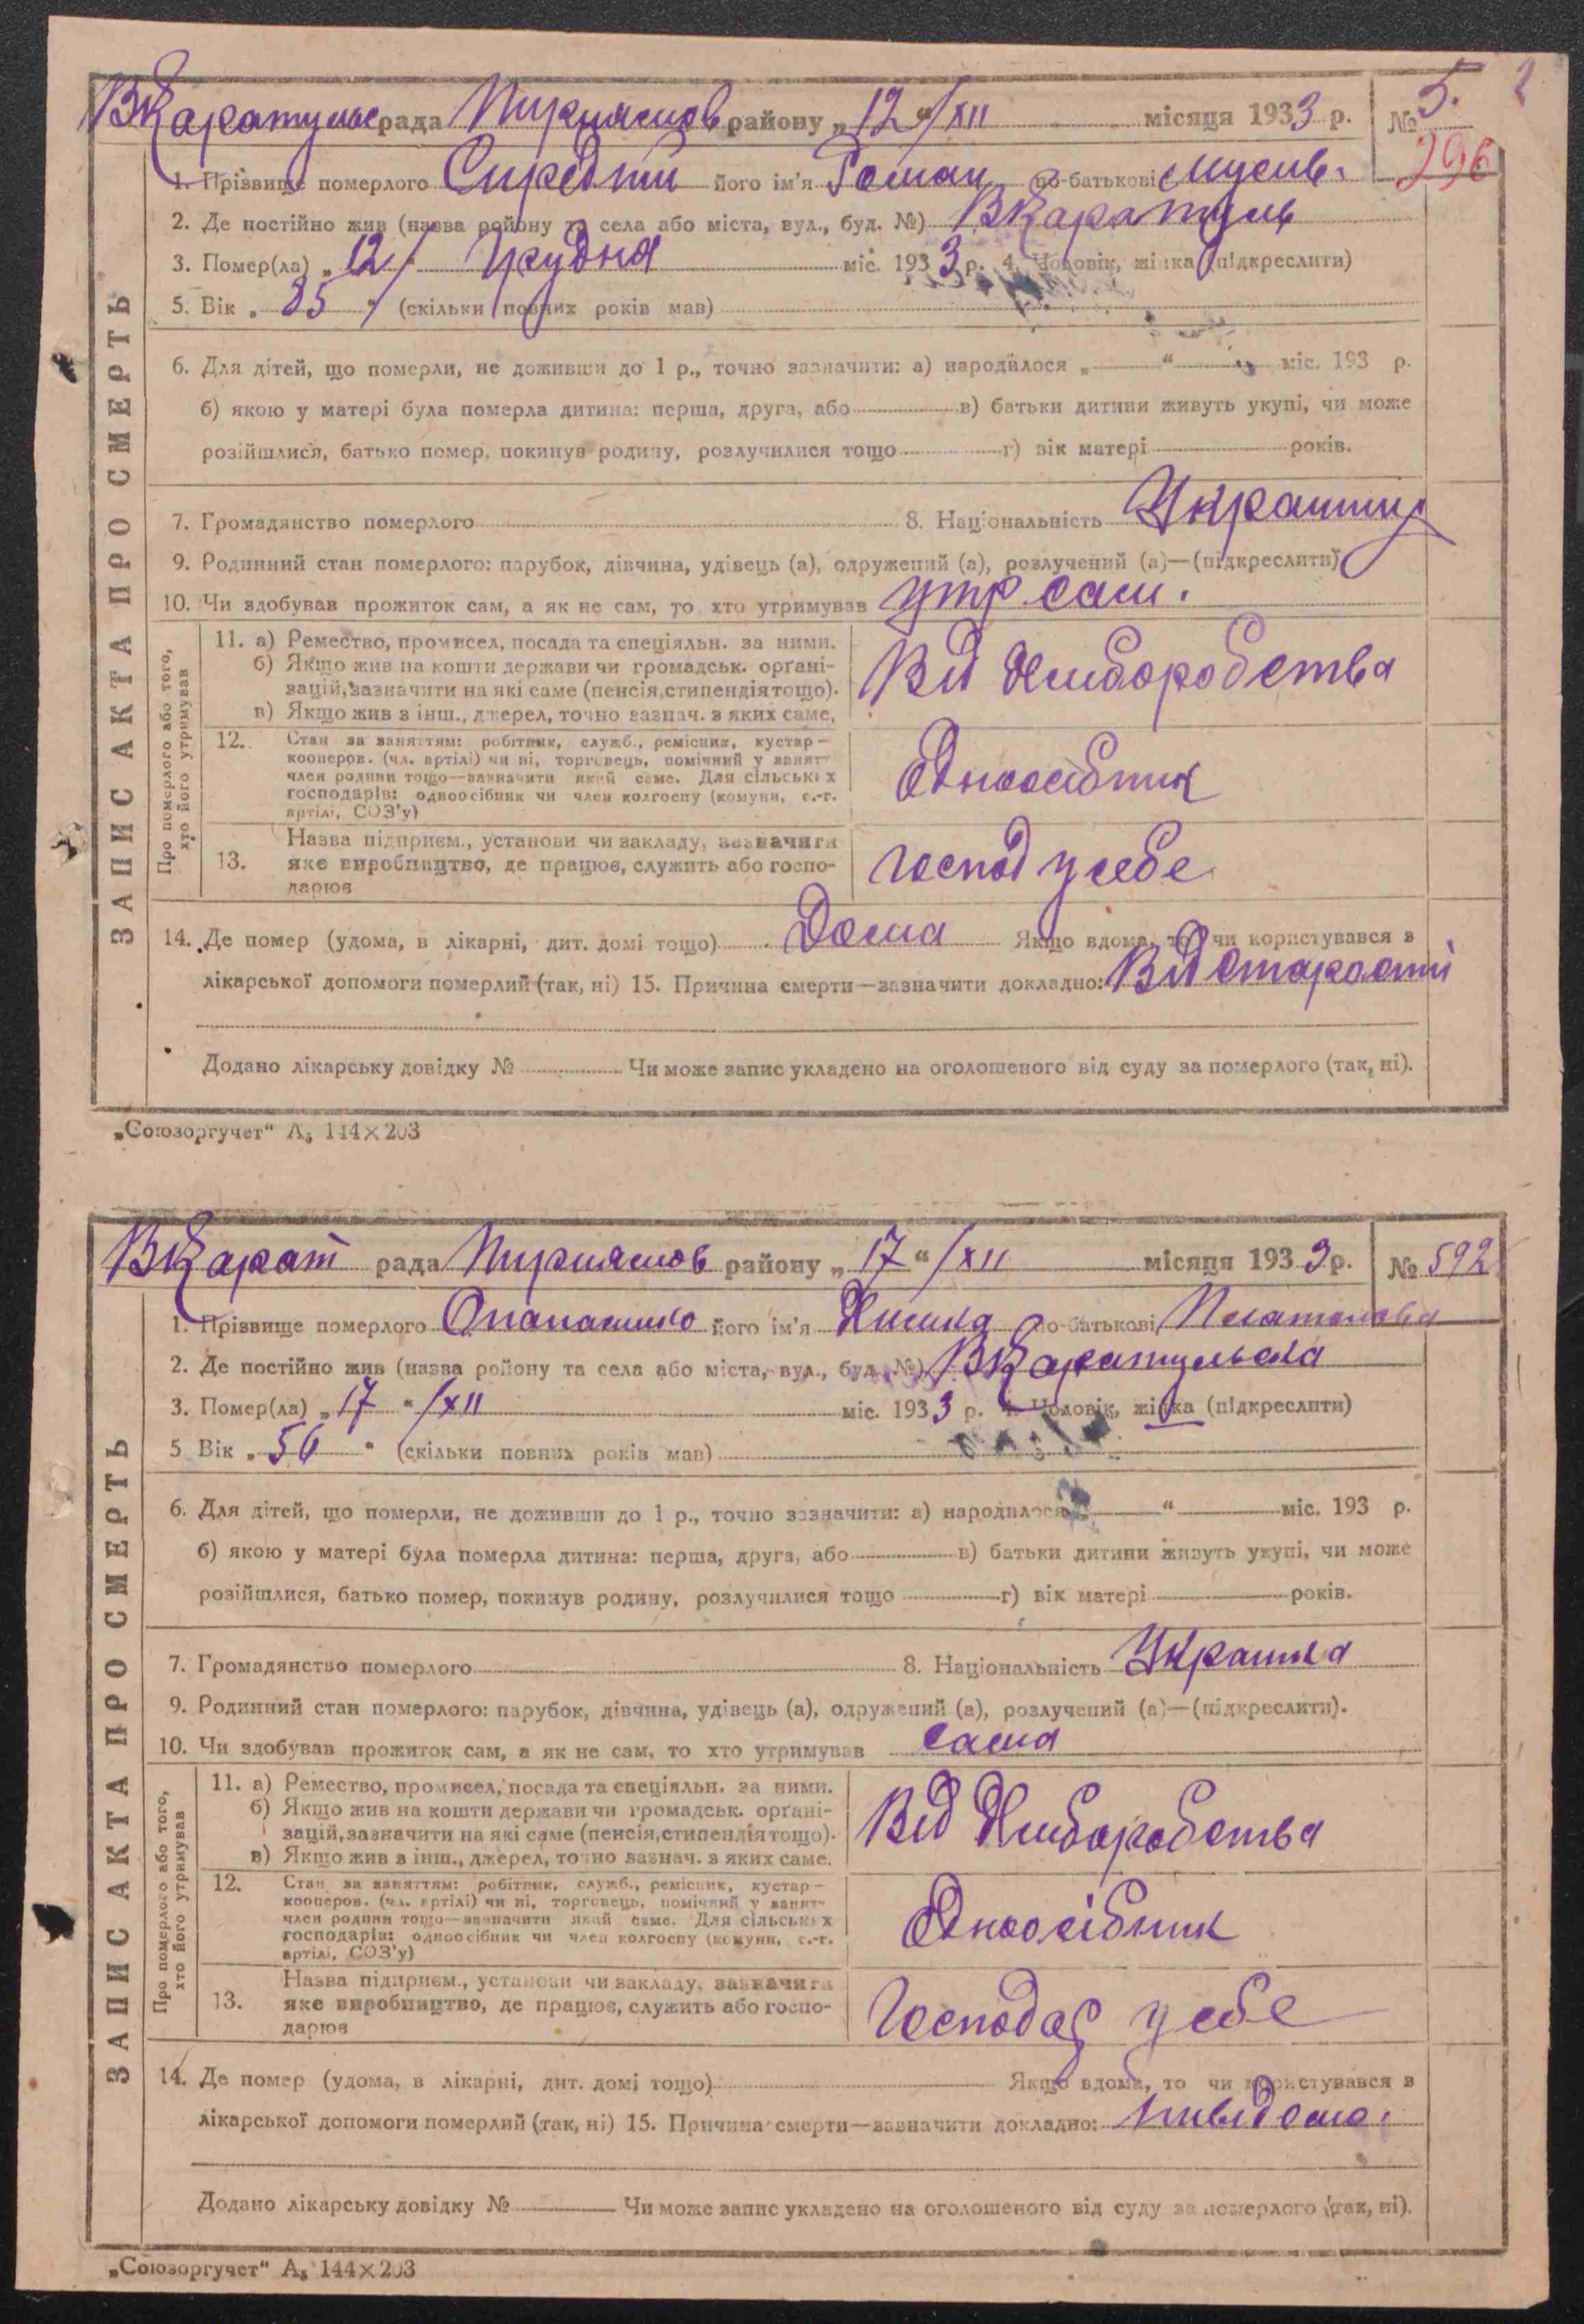 ВКаратульс рада Пириятов району „ 12 “ /XII місяця 1933 р. № 5.
296
1. Прізвище померлого його ім'я Роман по-батькові Мусів.
2. Де постійно жив (назва району та села або міста, вул., буд. №) ВКаратуль
3. Помер(ла) „ 12 / Грудня міс. 1933 р. 4. Чоловік, жінка (підкреслити)
5. Вік „ 85 “ (скільки повних років мав)
6. Для дітей, що померли, не доживши до 1 р., точно зазначити: а) народилося „ “ міс. 193 р.
б) якою у матері була померла дитина: перша, друга, або в) батьки дитини живуть укупі, чи може
розійшлися, батько помер, покинув родину, розлучилися тощо г) вік матері років.
7. Громадянство померлого 8. Національність Украинц
9. Родинний стан померлого: парубок, дівчина, удівець (а), одружений (а), розлучений (а)—(підкреслити)
10. Чи здобував прожиток сам, а як не сам, то хто утримував утр. сам.
11. а) Ремество, промисел, посада та спеціяльн. за ними.
б) Якщо жив на кошти держави чи громадськ. органі-
зацій, зазначити на які саме (пенсія, стипендія тощо).
в) Якщо жив з інш., джерел, точно зазнач. з яких саме,
Від Хліборобства
12. Стан за заняттям: робітник, служб., ремісник, кустар—
кооперов. (чл. артілі) чи ні, торговець, помічний у занятт
член родини тощо—зазначити який саме. Для сільських
господарів: одноосібник чи член колгоспу (комуни, с.-г.
артілі, СОЗ'у)
Одноосібник
13. Назва підприєм., установи чи закладу, зазначити
яке виробництво, де працює, служить або госпо-
дарює
Господ у себе
14. Де помер (удома, в лікарні, дит. домі тощо) Дома Якщо вдома, то чи користувався з
лікарської допомоги померлий (так, ні) 15. Причина смерти—зазначити докладно: Від старости
Додано лікарську довідку № Чи може запис укладено на оголошеного від суду за померлого (так, ні).
ЗАПИС АКТА ПРО СМЕРТЬ
Про померлого або того,
хто його утримував
„Союзоргучет“ А₅ 144×203
ВКарат рада Пириятов району „ 17 “ /XII місяця 1933 р. № 592
1. Прізвище померлого Опанасенко його ім'я по-батькові Платонова
2. Де постійно жив (назва району та села або міста, вул., буд. №) ВКаратульска
3. Помер(ла) „ 17 “ /XII міс. 1933 р. 4. Чоловік, жінка (підкреслити)
5 Вік „ 56 “ (скільки повних років мав)
6. Для дітей, що померли, не доживши до 1 р., точно зазначити: а) народилося „ “ міс. 193 р.
б) якою у матері була померла дитина: перша, друга, або в) батьки дитини живуть укупі, чи може
розійшлися, батько помер, покинув родину, розлучилися тощо г) вік матері років.
7. Громадянство померлого 8. Національність Украинка
9. Родинний стан померлого: парубок, дівчина, удівець (а), одружений (а), розлучений (а)—(підкреслити).
10. Чи здобував прожиток сам, а як не сам, то хто утримував сама
11. а) Ремество, промисел, посада та спеціяльн. за ними.
б) Якщо жив на кошти держави чи громадськ. органі-
зацій, зазначити на які саме (пенсія, стипендія тощо).
в) Якщо жив з інш., джерел, точно зазнач. з яких саме.
Від Хліборобства
12. Стан за заняттям: робітник, служб., ремісник, кустар—
кооперов. (чл. артілі) чи ні, торговець, помічний у занятт
член родини тощо—зазначити який саме. Для сільських
господарів: одноосібник чи член колгоспу (комуни, с.-г.
артілі, СОЗ'у)
Одноосібник
13. Назва підприєм., установи чи закладу, зазначити
яке виробництво, де працює, служить або госпо-
дарює
Господар у себе
14. Де помер (удома, в лікарні, дит. домі тощо) Якщо вдома, то чи користувався з
лікарської допомоги померлий (так, ні) 15. Причина смерти—зазначити докладно: нивідомо.
Додано лікарську довідку № Чи може запис укладено на оголошеного від суду за померлого (так, ні).
ЗАПИС АКТА ПРО СМЕРТЬ
Про померлого або того,
хто його утримував
„Союзоргучет“ А₅ 144×203